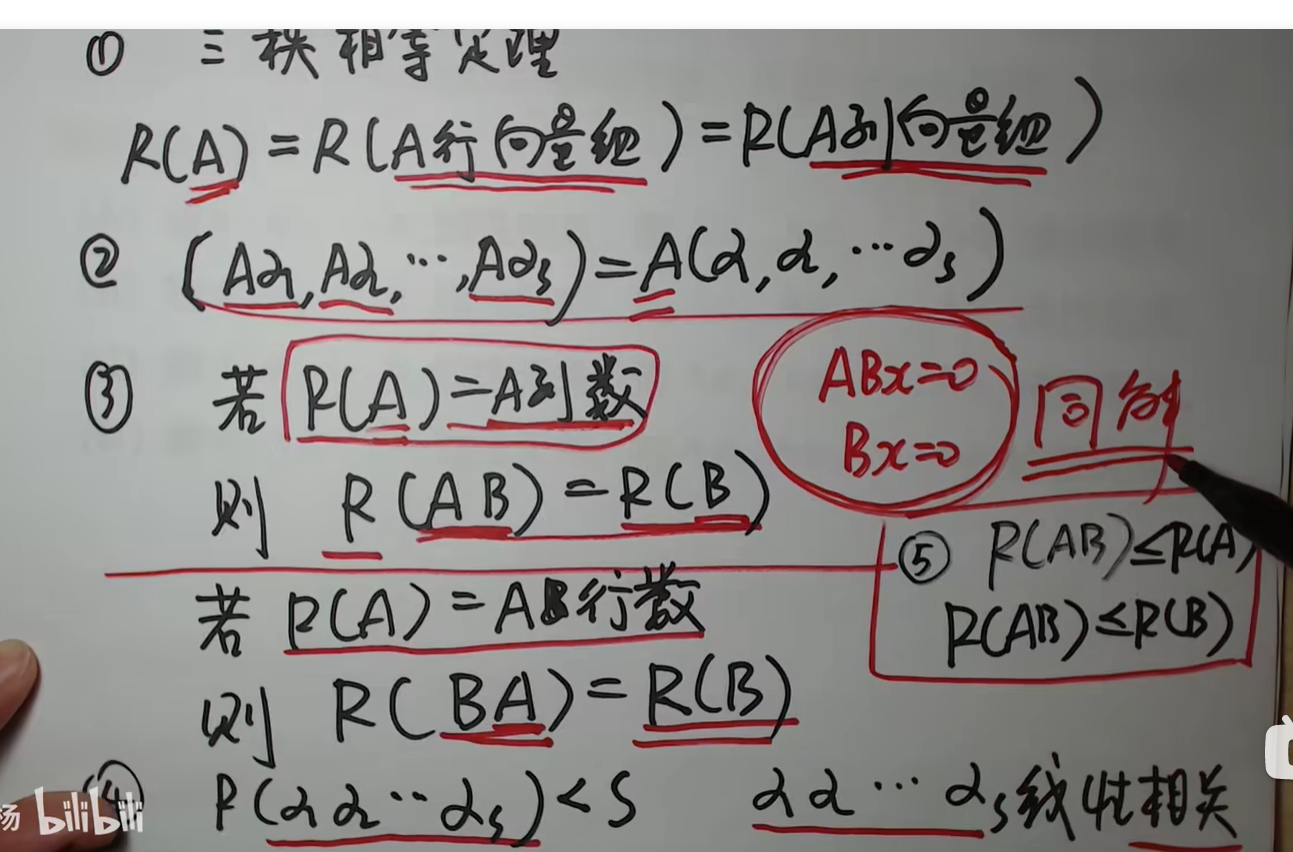 ① 三秩相等定理
R(A) = R(A行向量组) = R(A列向量组)
② (Aα₁, Aα₂, ⋯, Aαₛ) = A(α, α, ⋯ αₛ)
③ 若 R(A) = A列数
则 R(AB) = R(B)
ABx=0
Bx=0
同解
若 R(A) = A行数
则 R(BA) = R(B)
⑤ R(AB) ≤ R(A)
R(AB) ≤ R(B)
④ R(α α ⋯ αₛ) < S α α ⋯ αₛ 线性相关
杨 bilibili